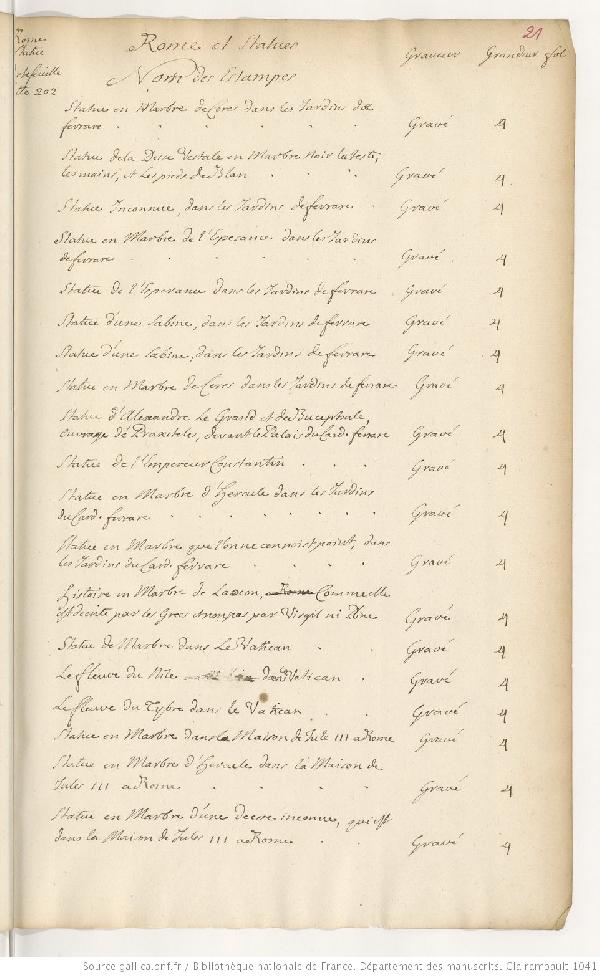 21
Rome
Statue
Portefeuille
Cte 202
Rome et Statues
Graveur Grandeur fol
Nom des Estampes
Statue en Marbre de Ceres dans les Jardins de
ferrare Gravé 4
Statue de la Deese Vestale en Marbre Noir la teste,
les mains, et les pieds de Blan Gravé 4
Statue Inconnue, dans les Jardins de ferrare Gravé 4
Statue en Marbre de l'Esperance dans les Jardins
de ferrare Gravé 4
Statue de l'Esperance dans les Jardins de ferrare Gravé 4
Statue d'une Sabine, dans les Jardins de ferrare Gravé 4
Statue d'une Sabine, dans les Jardins de ferrare Gravé 4
Statue en Marbre de Ceres dans les Jardins de ferrare Gravé 4
Statue d'Alexandre Le Grand et de Bucephale,
ouvrage de Praxiteles, devant le Palais du Card. ferrare Gravé 4
Statue de l'Empereur Constantin Gravé 4
Statue en Marbre d'Hercule dans les Jardins
du Card. ferrare Gravé 4
Statue en Marbre que l'on ne connoist point, dans
les Jardins du Card. ferrare Gravé 4
Histoire en Marbre de Laocon, Rome Comme elle
est decrite par les Grecs et non pas par Virgil ni Pline Gravé 4
Statue de Marbre dans Le Vatican Gravé 4
Le fleuve du Nile dans Vatican Gravé 4
Le fleuve du Tybre dans le Vatican Gravé 4
Statue en Marbre dans la Maison de Jule III a Rome Gravé 4
Statue en Marbre d'Hercule dans la Maison de
Jules III a Rome Gravé 4
Statue en Marbre d'une deesse inconnue, qui est
dans la Maison de Jules III a Rome Gravé 4
Source gallica.bnf.fr / Bibliothèque nationale de France. Département des manuscrits. Clairambault 1041